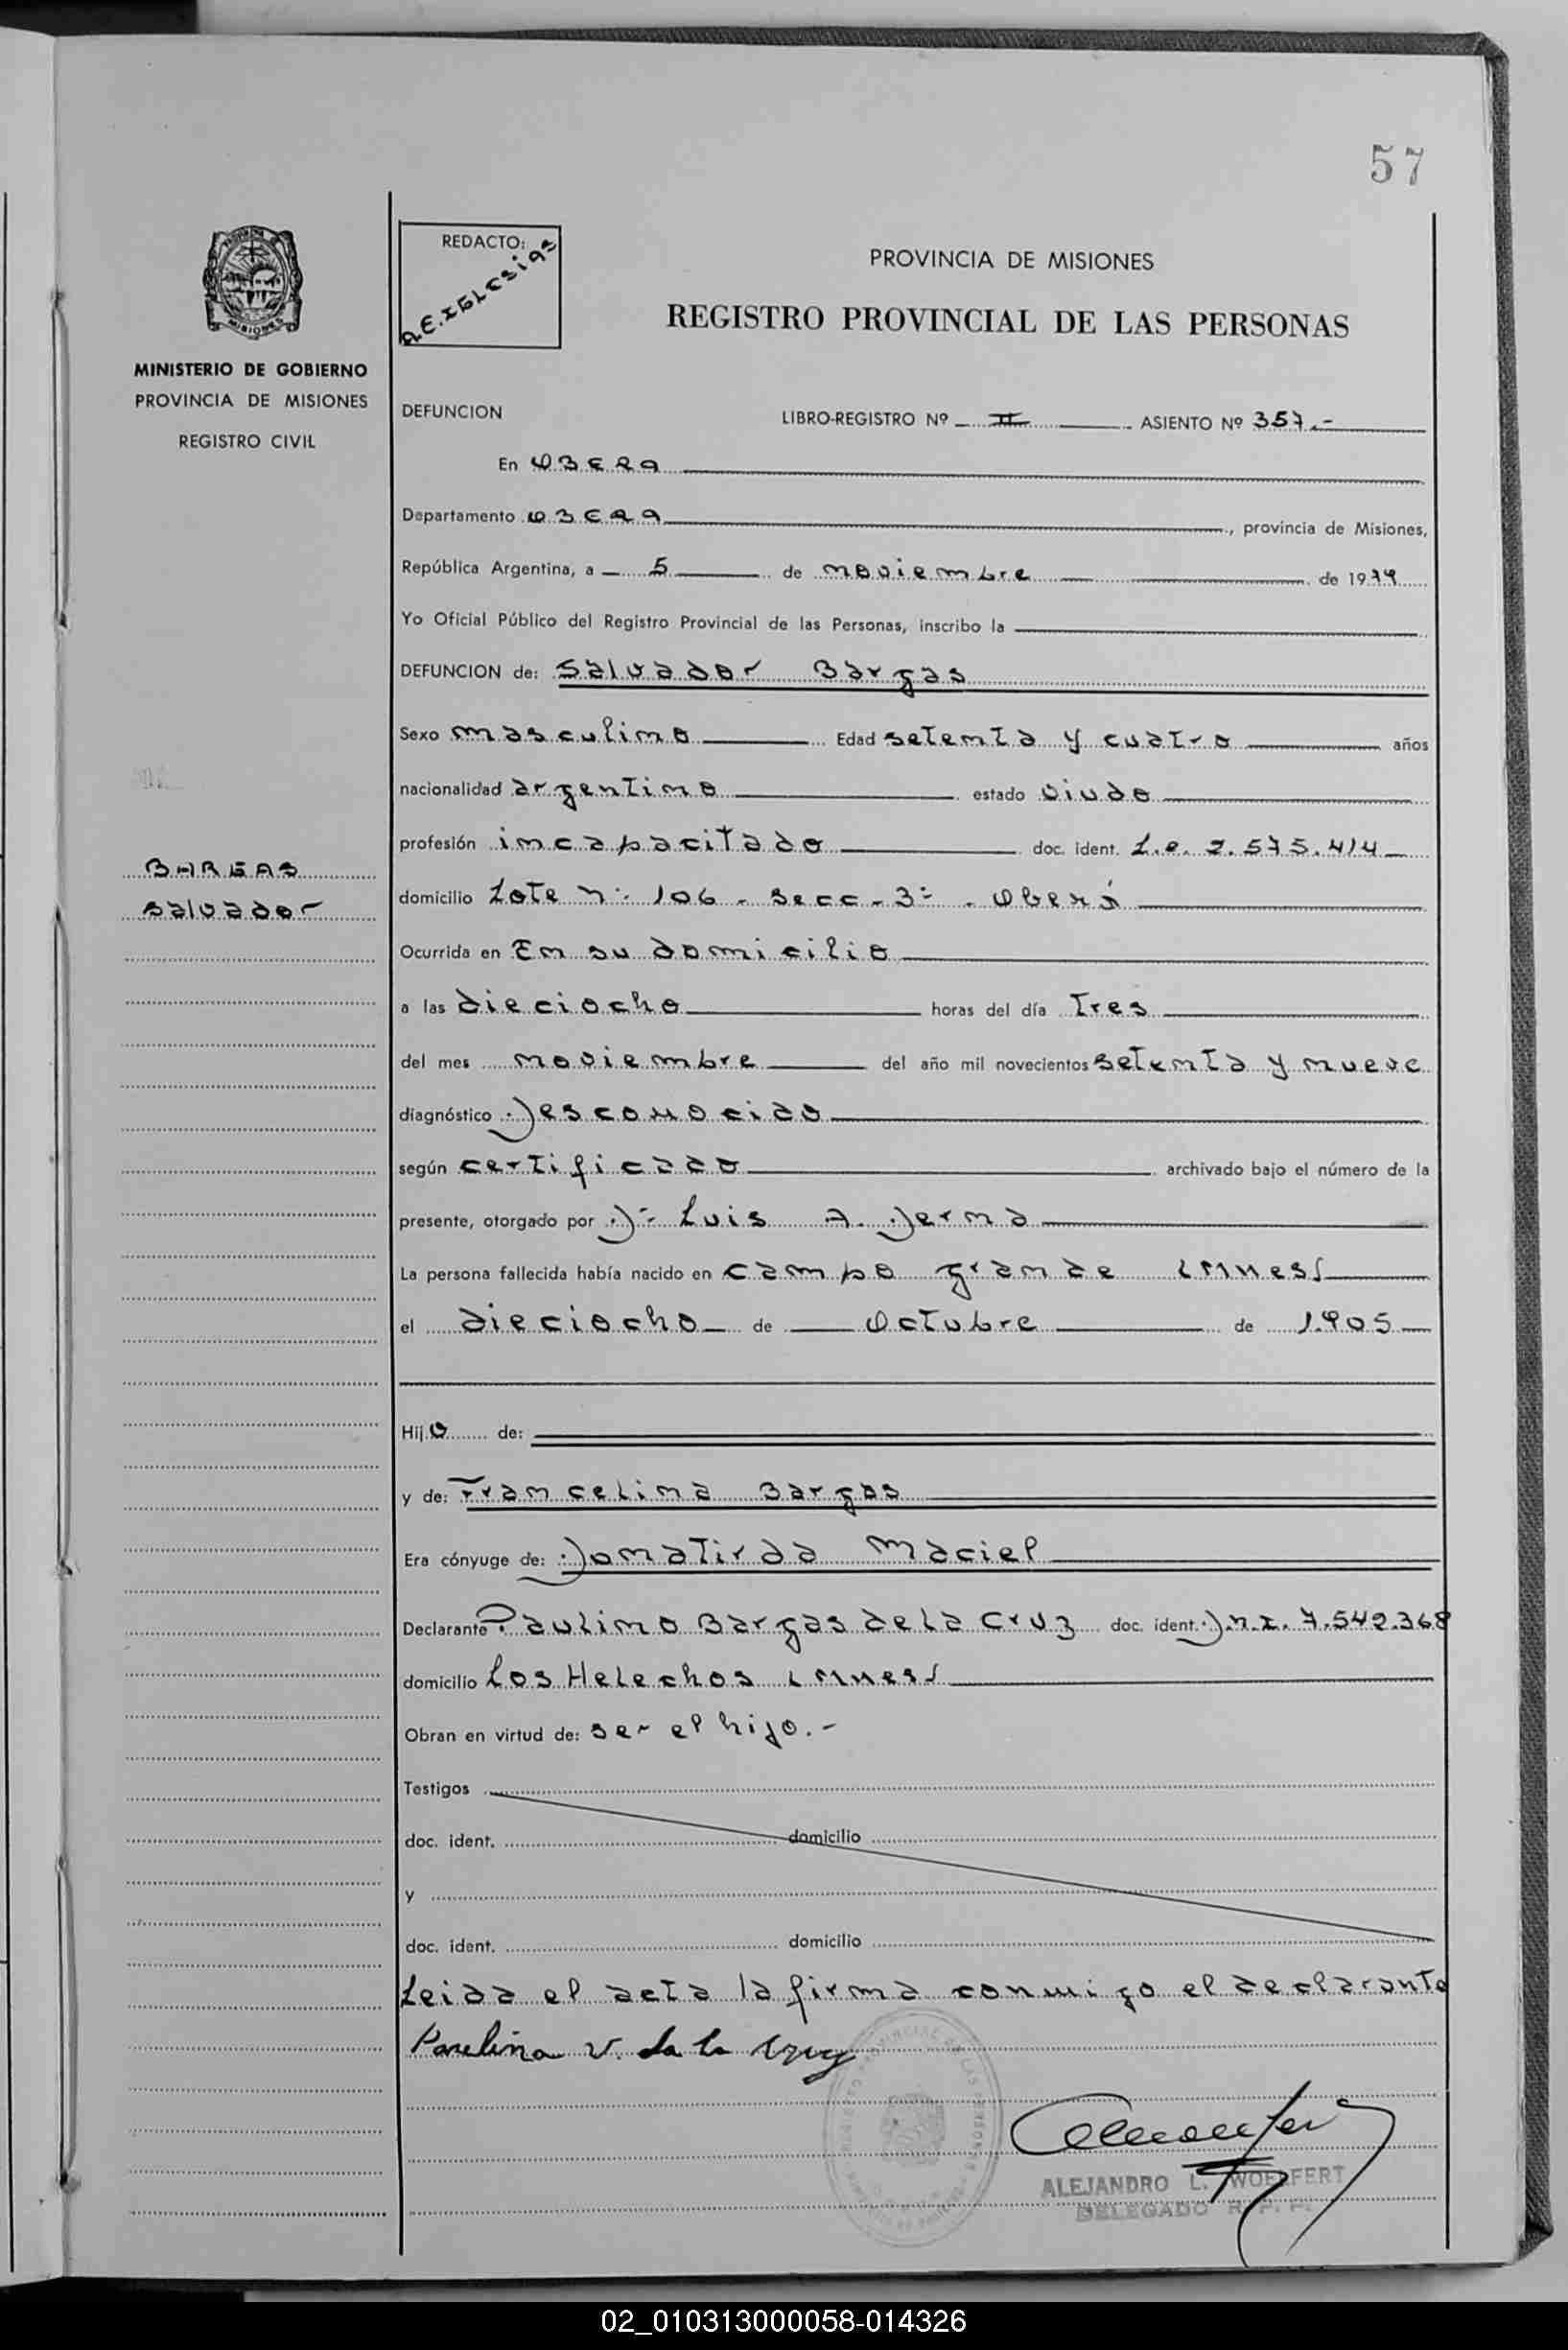 57
REDACTO:
R.E. IGLESIAS
PROVINCIA DE MISIONES
REGISTRO PROVINCIAL DE LAS PERSONAS
MISIONES
MINISTERIO DE GOBIERNO
PROVINCIA DE MISIONES
REGISTRO CIVIL
BARGAS
Salvador
DEFUNCION LIBRO-REGISTRO Nº II ASIENTO Nº 357.-
En OBERA
Departamento OBERA, provincia de Misiones,
República Argentina, a 5 de noviembre de 1979
Yo Oficial Público del Registro Provincial de las Personas, inscribo la
DEFUNCION de: Salvador Bargas
Sexo masculino Edad setenta y cuatro años
nacionalidad argentino estado viudo
profesión incapacitado doc. ident. L.e. 2.575.414
domicilio Lote nº 106 - secc - 3ª - Oberá
Ocurrida en En su domicilio
a las dieciocho horas del día Tres
del mes noviembre del año mil novecientos setenta y nueve
diagnóstico Desconocido
según certificado archivado bajo el número de la
presente, otorgado por Dr Luis A. Derna
La persona fallecida había nacido en campo grande (Mnes)
el dieciocho de Octubre de 1.905
Hijo de:
y de: Francelina Bargas
Era cónyuge de: Domatirda Maciel
Declarante Paulino Bargas de la Cruz doc. ident. D.N.I. 7.542.368
domicilio Los Helechos (Mnes)
Obran en virtud de: ser el hijo.-
Testigos
doc. ident. domicilio
y
doc. ident. domicilio
Leida el acta la firma conmigo el declarante
V. de la
ALEJANDRO L. WOELFERT
DELEGADO R. P. P.
02_010313000058-014326